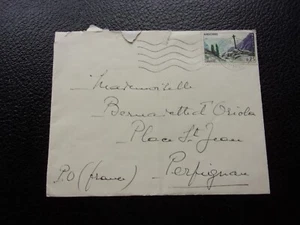 ANDORRE
Mademoiselle
Bernadette d'Oriola
Place St Jean
Perpignan
P.O (france)